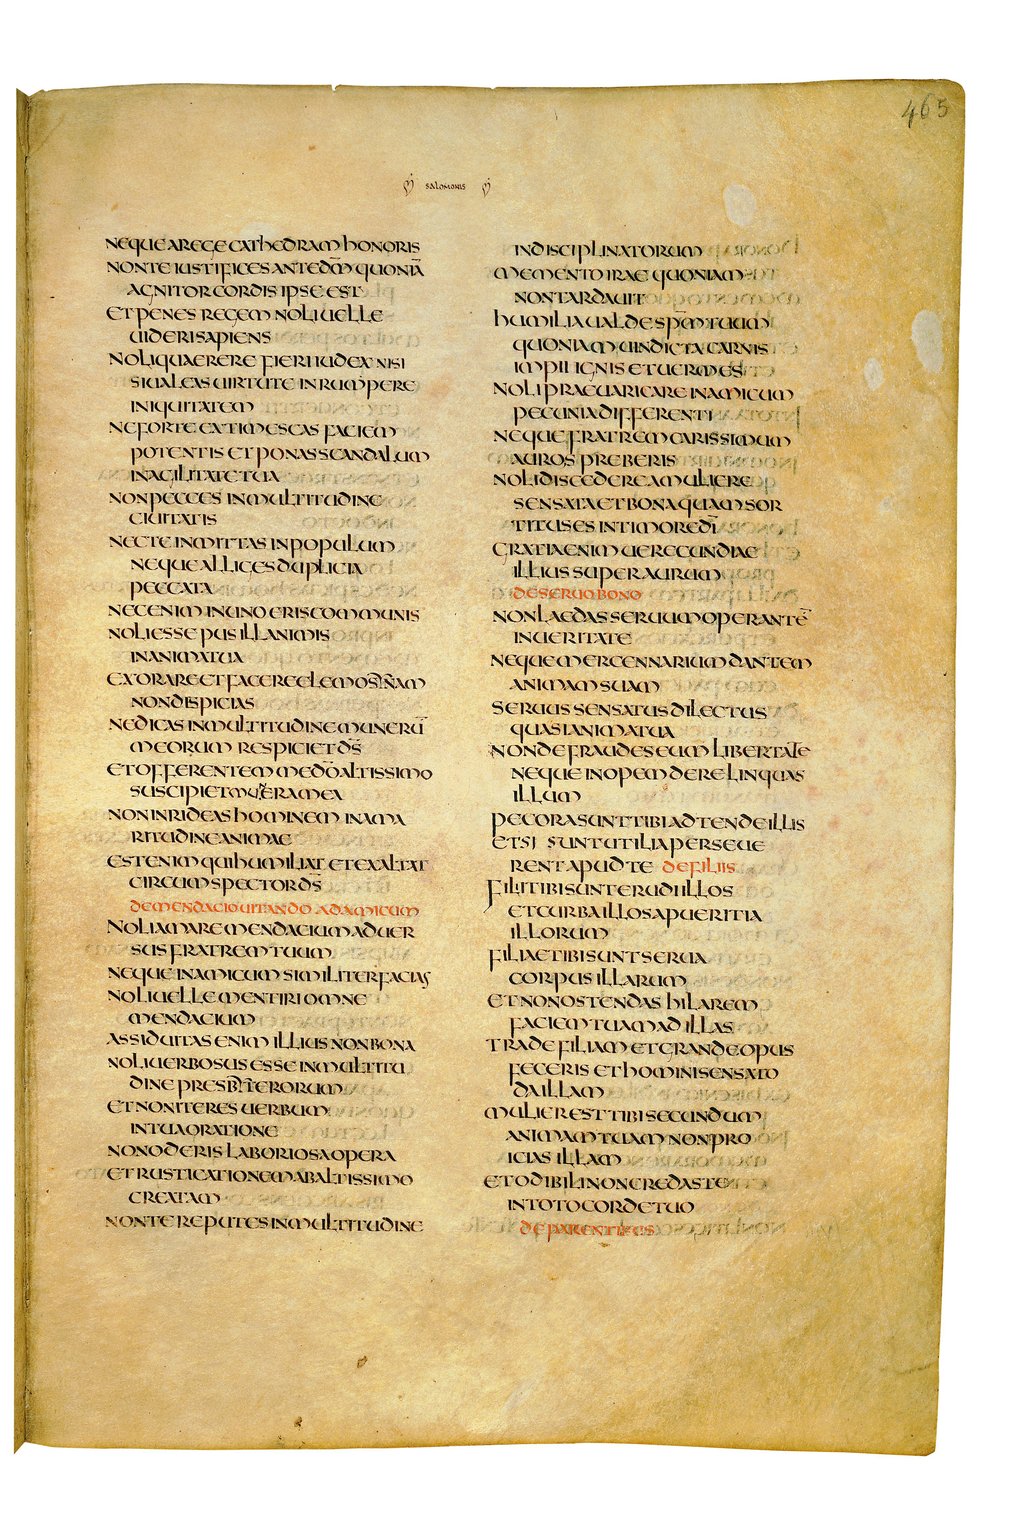 465
SALOMONIS
NEQUE A REGE CATHEDRAM HONORIS
NON TE IUSTIFICES ANTE DM̄ QUONIĀ
AGNITOR CORDIS IPSE EST
ET PENES REGEM NOLI UELLE
UIDERI SAPIENS
NOLI QUAERERE FIERI IUDEX NISI
SI UALEAS UIRTUTE INRUMPERE
INIQUITATEM
NE FORTE EXTIMESCAS FACIEM
POTENTIS ET PONAS SCANDALUM
IN AGILITATE TUA
NON PECCES IN MULTITUDINE
CIUITATIS
NEC TE INMITTAS IN POPULUM
NEQUE ALLIGES DUPLICIA
PECCATA
NEC ENIM IN UNO ERIS COMMUNIS
NOLI ESSE PUSILLANIMIS
IN ANIMA TUA
EXORARE ET FACERE ELEMOSINAM
NON DISPICIAS
NE DICAS IN MULTITUDINE MUNERŪ
MEORUM RESPICIET DS̄
ET OFFERENTE ME DŌ ALTISSIMO
SUSCIPIET MUNERA MEA
NON INRIDEAS HOMINEM IN AMA
RITUDINE ANIMAE
EST ENIM QUI HUMILIAT ET EXALTAT
CIRCUMSPECTOR DS̄
DE MENDACIO UITANDO AD AMICUM
NOLI AMARE MENDACIUM ADUER
SUS FRATREM TUUM
NEQUE IN AMICUM SIMILITER FACIAS
NOLI UELLE MENTIRI OMNE
MENDACIUM
ASSIDUITAS ENIM ILLIUS NON BONA
NOLI UERBOSUS ESSE IN MULTITU
DINE PRESBITERORUM
ET NON ITERES UERBUM
IN TUA ORATIONE
NON ODERIS LABORIOSA OPERA
ET RUSTICATIONEM AB ALTISSIMO
CREATAM
NON TE REPUTES IN MULTITUDINE
INDISCIPLINATORUM
MEMENTO IRAE QUONIAM
NON TARDAUIT
HUMILIA UALDE SPM̄ TUUM
QUONIAM UINDICTA CARNIS
IMPII IGNIS ET UERMES
NOLI PRAEUARICARE IN AMICUM
PECUNIA DIFFERENTI
NEQUE FRATREM CARISSIMUM
AURO SPREBERIS
NOLI DISCEDERE A MULIERE
SENSATA ET BONA QUAM SOR
TITUS ES IN TIMORE DĪ
GRATIA ENIM UERECUNDIAE
ILLIUS SUPER AURUM
DE SERUO BONO
NON LAEDAS SERUUM OPERANTĒ
IN UERITATE
NEQUE MERCENNARIUM DANTEM
ANIMAM SUAM
SERUUS SENSATUS DILECTUS
QUASI ANIMA TUA
NON DEFRAUDES EUM LIBERTATE
NEQUE INOPEM DERELINQUAS
ILLUM
PECORA SUNT TIBI ADTENDE ILLIS
ET SI SUNT UTILIA PERSEUE
RENT APUD TE DE FILIIS
FILII TIBI SUNT ERUDI ILLOS
ET CURBA ILLOS A PUERITIA
ILLORUM
FILIAE TIBI SUNT SERUA
CORPUS ILLARUM
ET NON OSTENDAS HILAREM
FACIEM TUAM AD ILLAS
TRADE FILIAM ET GRANDE OPUS
FECERIS ET HOMINI SENSATO
DA ILLAM
MULIER EST TIBI SECUNDUM
ANIMAM TUAM NON PRO
ICIAS ILLAM
ET ODIBILI NON CREDAS TE
IN TOTO CORDE TUO
DE PARENTIBUS